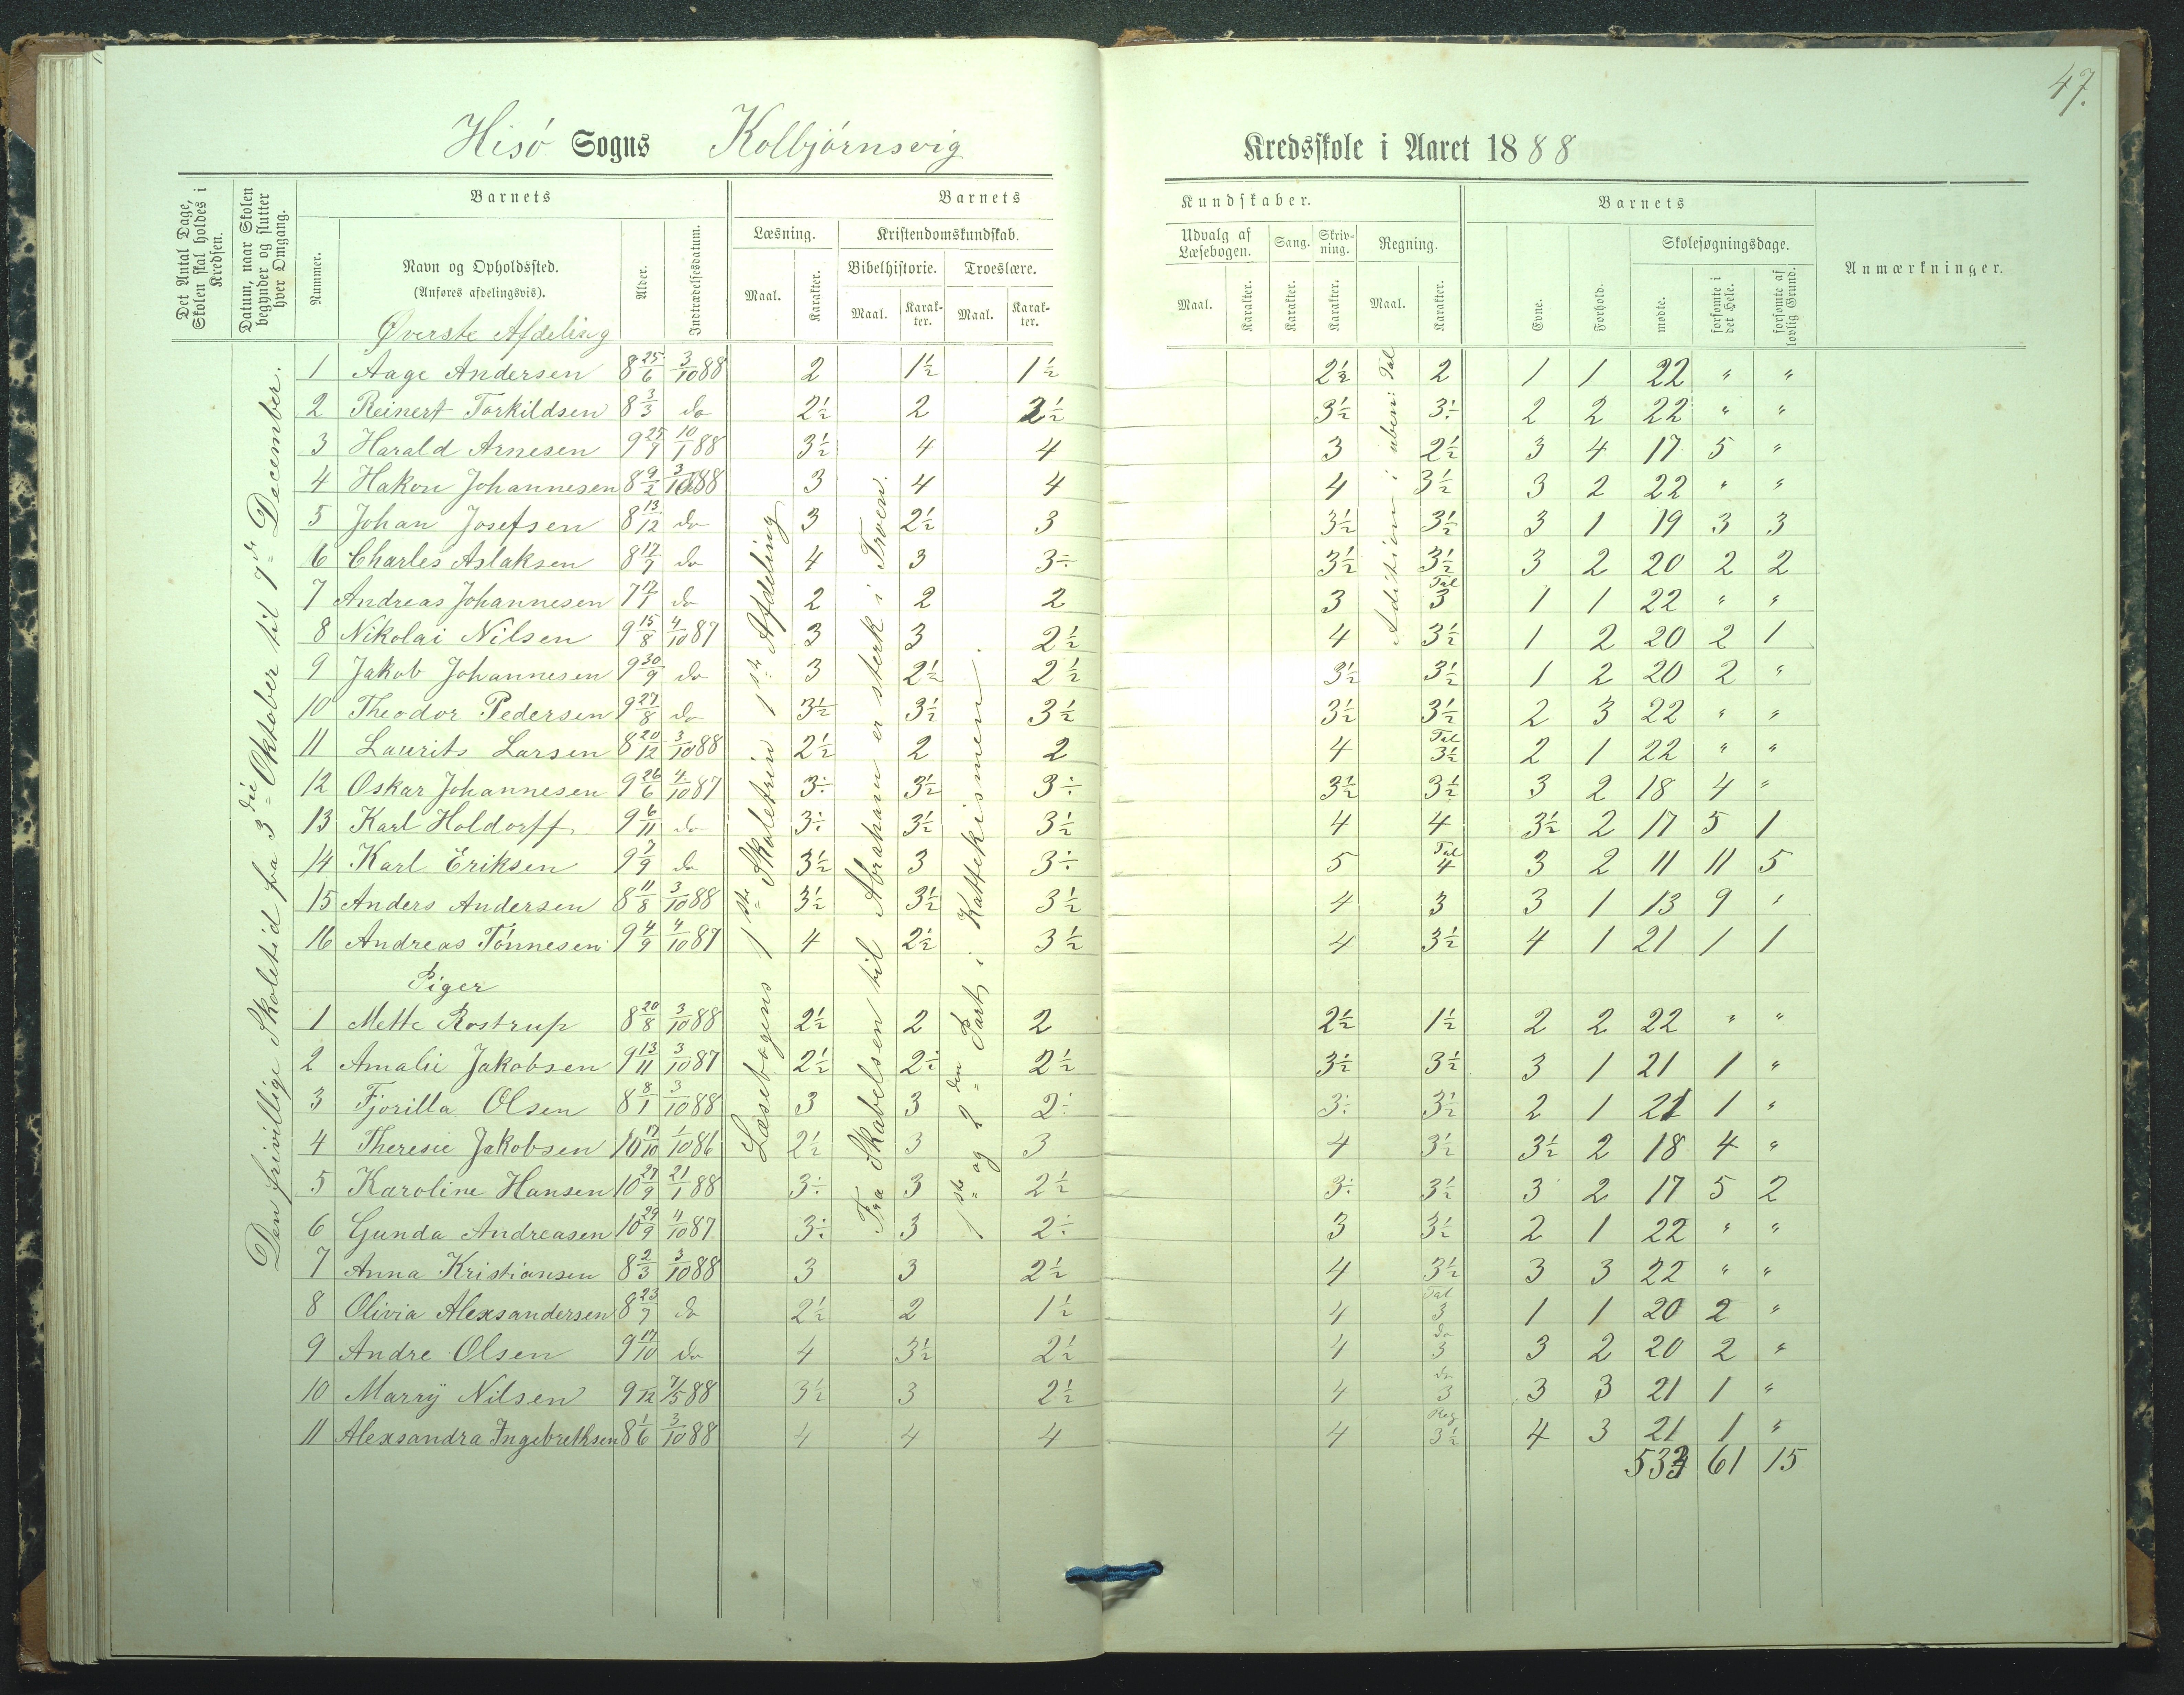 47.
Hisö Sogns Kolbjörnsvig Kredsskole i Aaret 1888
Det Antal Dage, Skolen skal holdes i Kredsen.
Datum, naar Skolen begynder og slutter hver Omgang.
Barnets
Nummer.
Navn og Opholdssted.
(Anføres afdelingsvis).
Øverste Afdeling
Alder.
Indtrædelsesdatum.
Barnets Kundskaber.
Læsning. Kristendomskundskab. Udvalg af Læsebogen. Sang. Skrivning. Regning.
Bibelhistorie. Troeslære.
Maal. Karakter. Maal. Karakter. Maal. Karakter. Maal. Karakter. Karakter. Karakter. Maal. Karakter.
Barnets
Evne. Forhold. Skolesøgningsdage.
mødte. forsømte i det Hele. forsømte af lovlig Grund.
Anmærkninger.
Den frivillige Skoletid fra 3die Oktober til 7de December.
Læsebogens 1ste Skoletrin 1ste Afdeling
Fra Skabelsen til Abraham er sterk i Troen.
1ste og 2den Part i Kattekismen.
Adition i uben: Tal
1 Aage Andersen 8 25/6 3/10 88 2 1½ 1½ 2½ 2 1 1 22 " "
2 Reinert Torkildsen 8 3/3 do 2½ 2 2½ 3½ 3÷ 2 2 22 " "
3 Harald Arnesen 9 25/7 10/1 88 3½ 4 4 3 2½ 3 4 17 5 "
4 Hakon Johannesen 8 9/2 3/10 88 3 4 4 4 3½ 3 2 22 " "
5 Johan Josefsen 8 13/12 do 3 2½ 3 3½ 3½ 3 1 19 3 3
6 Charles Aslaksen 8 17/7 do 4 3 3÷ 3½ 3½ 3 2 20 2 2
7 Andreas Johannesen 7 12/1 do 2 2 2 3 Tal 3 1 1 22 " "
8 Nikolai Nilsen 9 15/8 4/10 87 3 3 2½ 4 3½ 1 2 20 2 1
9 Jakob Johannesen 9 30/9 do 3 2½ 2½ 3½ 3½ 1 2 20 2 "
10 Theodor Pedersen 9 27/8 do 3½ 3½ 3½ 3½ 3½ 2 3 22 " "
11 Laurits Larsen 8 20/12 3/10 88 2½ 2 2 4 Tal 3½ 2 1 22 " "
12 Oskar Johannesen 9 26/6 4/10 87 3÷ 3½ 3÷ 3½ 3½ 3 2 18 4 "
13 Karl Holdorff 9 6/11 do 3÷ 3½ 3½ 4 4 3½ 2 17 5 1
14 Karl Eriksen 9 7/9 do 3½ 3 3÷ 5 Tal 4 3 2 11 11 5
15 Anders Andersen 8 11/8 3/10 88 3½ 3½ 3½ 4 3 3 1 13 9 "
16 Andreas Tönnesen 9 4/9 4/10 87 4 2½ 3½ 4 3½ 4 1 21 1 1
Piger
1 Mette Rostrup 8 20/8 3/10 88 2½ 2 2 2½ 1½ 2 2 22 " "
2 Amalie Jakobsen 9 13/11 3/10 87 2½ 2÷ 2½ 3½ 3½ 3 1 21 1 "
3 Fjorilla Olsen 8 8/1 3/10 88 3 3 2÷ 3÷ 3½ 2 1 21 1 "
4 Theresie Jakobsen 10 17/10 1/10 86 2½ 3 3 4 3½ 3½ 2 18 4 "
5 Karoline Hansen 10 27/9 21/1 88 3÷ 3 2½ 3÷ 3½ 3 2 17 5 2
6 Gunda Andreasen 10 29/9 4/10 87 3÷ 3 2÷ 3 3½ 2 1 22 " "
7 Anna Kristiansen 8 2/3 3/10 88 3 3 2½ 4 3½ 3 3 22 " "
8 Olivia Alexsandersen 8 23/7 do 2½ 2 1½ 4 Tal 3 1 1 20 2 "
9 Andre Olsen 9 17/10 do 4 3½ 2½ 4 do 3 3 2 20 2 "
10 Marrÿ Nilsen 9 /12 7/5 88 3½ 3 2½ 4 do 3 3 3 21 1 "
11 Alexsandra Ingebrethsen 8 1/6 3/10 88 4 4 4 4 Reg 3½ 4 3 21 1 "
533 61 15